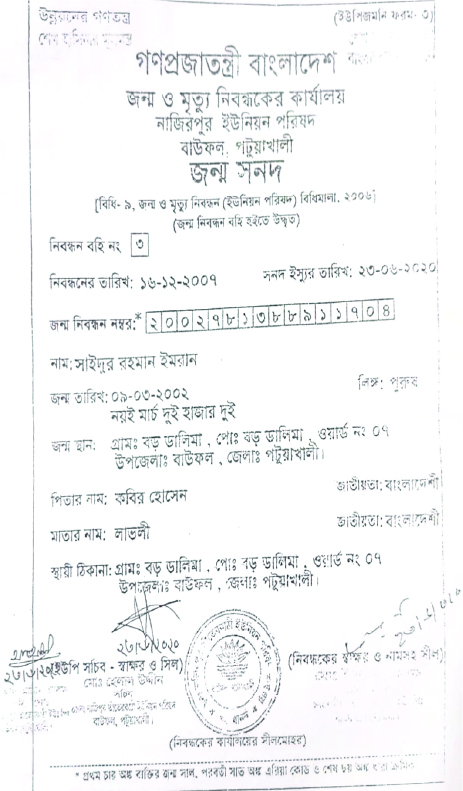 উন্নয়নের গণতন্ত্র
(ইউপিজমনি ফরম- ৩)
গণপ্রজাতন্ত্রী বাংলাদেশ
জন্ম ও মৃত্যু নিবন্ধকের কার্যালয়
নাজিরপুর ইউনিয়ন পরিষদ
বাউফল, পটুয়াখালী
জন্ম সনদ
[বিধি- ৯, জন্ম ও মৃত্যু নিবন্ধন (ইউনিয়ন পরিষদ) বিধিমালা, ২০০৬]
(জন্ম নিবন্ধন বহি হইতে উদ্ধৃত)
নিবন্ধন বহি নং ৩
নিবন্ধনের তারিখ: ১৬-১২-২০০৭ সনদ ইস্যুর তারিখ: ২৩-০৬-২০২০
জন্ম নিবন্ধন নম্বর:* ২০০২৭৮১৩৮৮৯১১৭০৪
নাম: সাইদুর রহমান ইমরান
জন্ম তারিখ: ০৯-০৩-২০০২ লিঙ্গ: পুরুষ
নয়ই মার্চ দুই হাজার দুই
জন্ম স্থান: গ্রামঃ বড় ডালিমা , পোঃ বড় ডালিমা , ওয়ার্ড নং ০৭
উপজেলাঃ বাউফল , জেলাঃ পটুয়াখালী।
পিতার নাম: কবির হোসেন জাতীয়তা: বাংলাদেশী
মাতার নাম: লাভলী জাতীয়তা: বাংলাদেশী
স্থায়ী ঠিকানা: গ্রামঃ বড় ডালিমা , পোঃ বড় ডালিমা , ওয়ার্ড নং ০৭
উপজেলাঃ বাউফল , জেলাঃ পটুয়াখালী।
(ইউপি সচিব - স্বাক্ষর ও সিল) (নিবন্ধকের স্বাক্ষর ও নামসহ সীল)
মোঃ হেলাল উদ্দীন
সচিব
বাউফল, পটুয়াখালী।
(নিবন্ধকের কার্যালয়ের সীলমোহর)
* প্রথম চার অঙ্ক ব্যক্তির জন্ম সাল, পরবর্তী সাত অঙ্ক এরিয়া কোড ও শেষ ছয় অঙ্ক